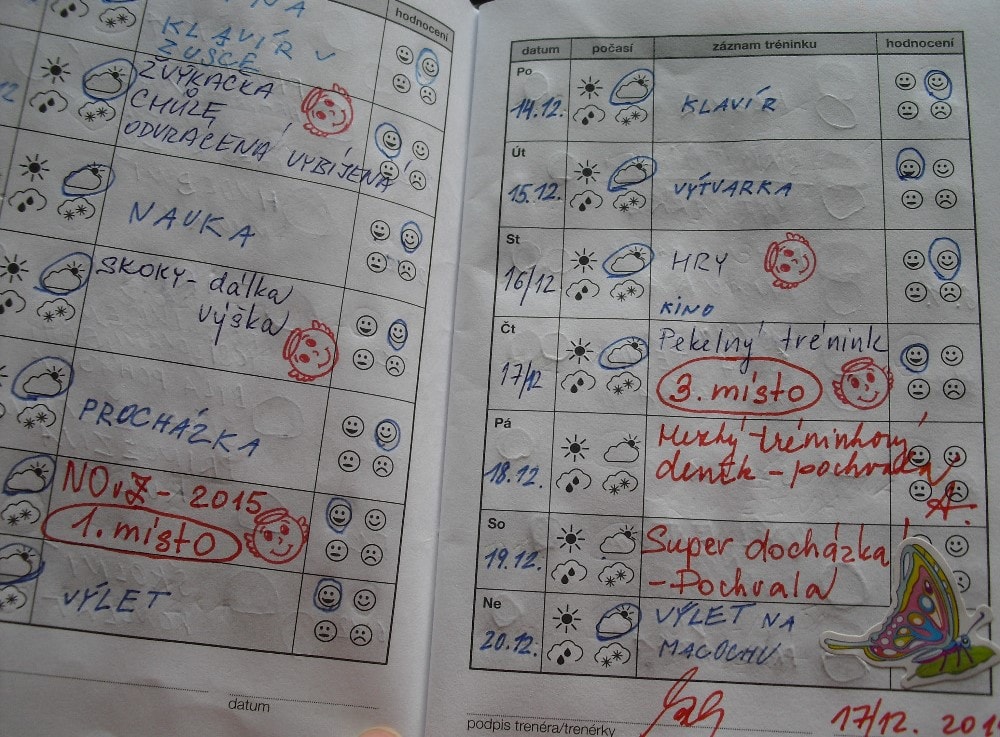 hodnocení
KLAVÍR V
ŽUŠCE
ŽVÝKAČKA
CHŮZE
ODVRÁCENÁ VYBÍJENÁ
NAUKA
SKOKY - dálka
výška
PROCHÁZKA
2015
1. místo
VÝLET
datum
datum počasí záznam tréninku hodnocení
Po
14.12. KLAVÍR
Út
15.12. VÝTVARKA
St
16/12 HRY
KINO
Čt
17/12 Pekelný trénink
3. místo
Pá
18.12. Hezký tréninkový
deník - pochvala
A.
So
19.12. Super docházka!
- Pochvala
Ne
20.12. VÝLET NA
MACOCHU
podpis trenéra/trenérky
17/12. 201